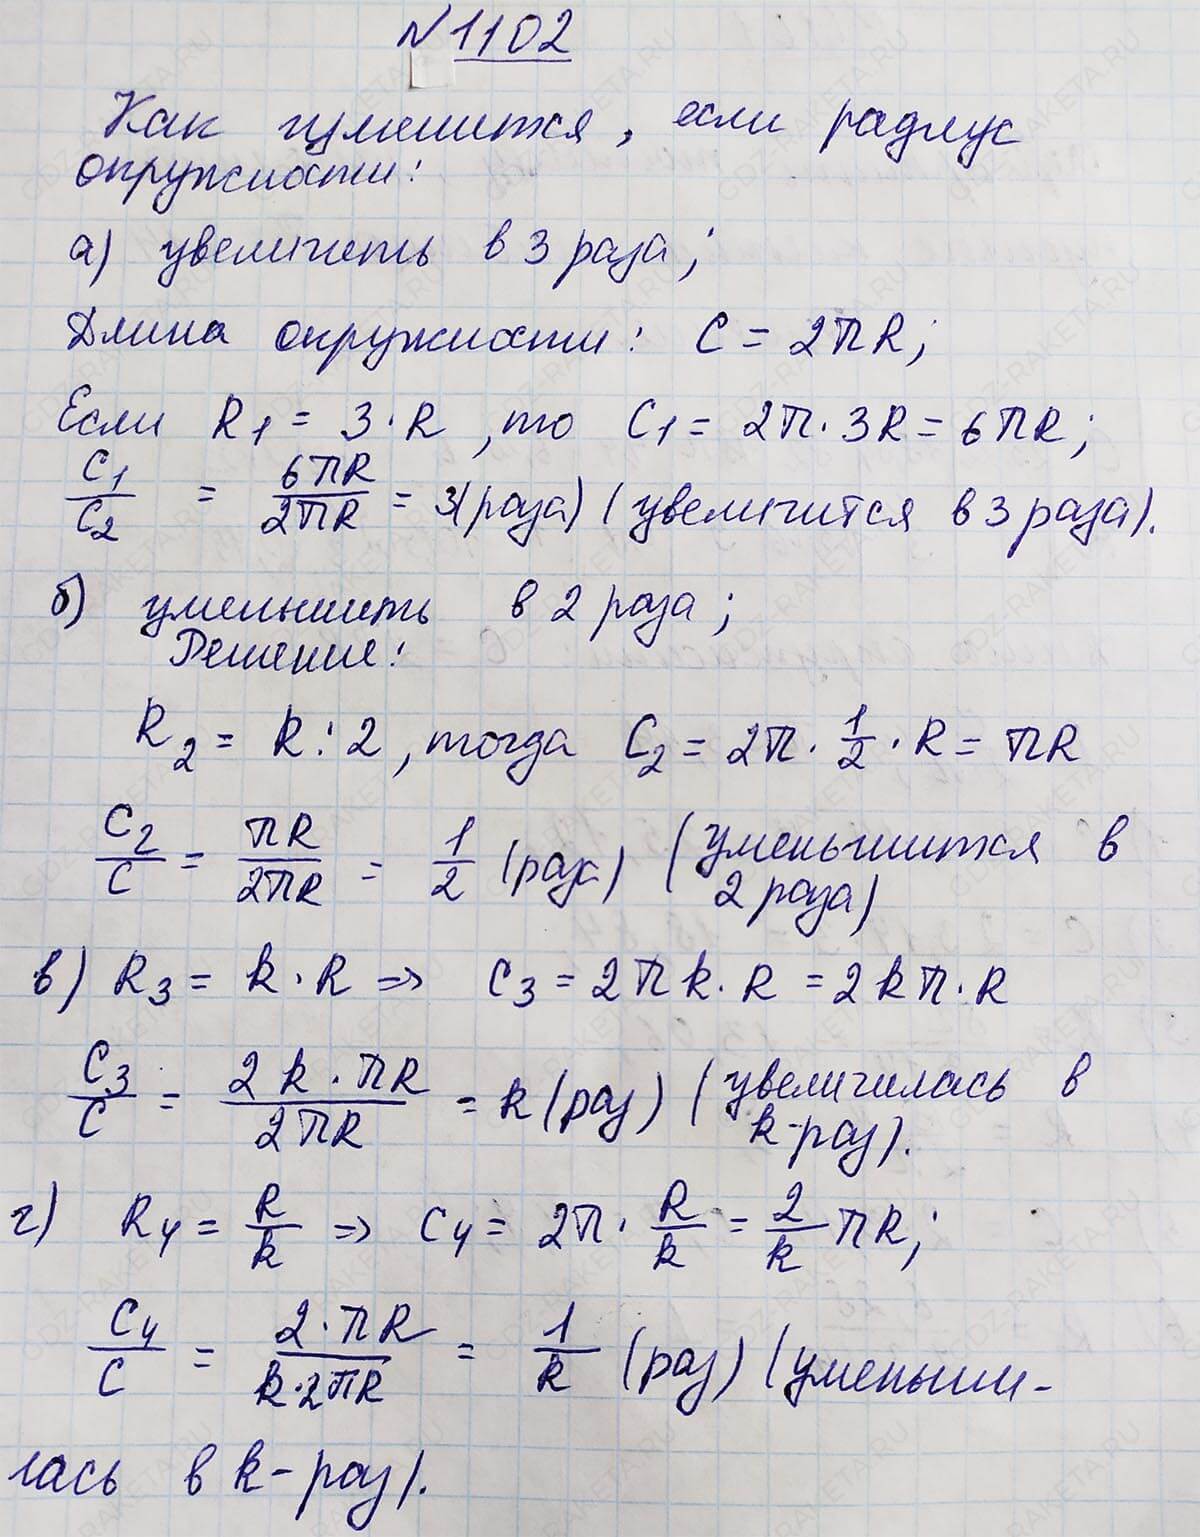 №1102
Как изменится, если радиус
окружности:
а) увеличить в 3 раза;
Длина окружности: C = 2πR;
Если R1 = 3·R, то C1 = 2π·3R = 6πR;
C1/C2 = 6πR/2πR = 3(раза) (увеличится в 3 раза).
б) уменьшить в 2 раза;
Решение:
R2 = R:2, тогда C2 = 2π·1/2·R = πR
C2/C = πR/2πR = 1/2 (раза) (уменьшится в
2 раза)
в) R3 = k·R => C3 = 2πk·R = 2kπ·R
C3/C = 2k·πR/2πR = k(раз) (увеличилась в
k-раз).
г) R4 = R/k => C4 = 2π·R/k = 2/k πR;
C4/C = 2·πR/k·2πR = 1/k (раз) (уменьши-
лась в k-раз).